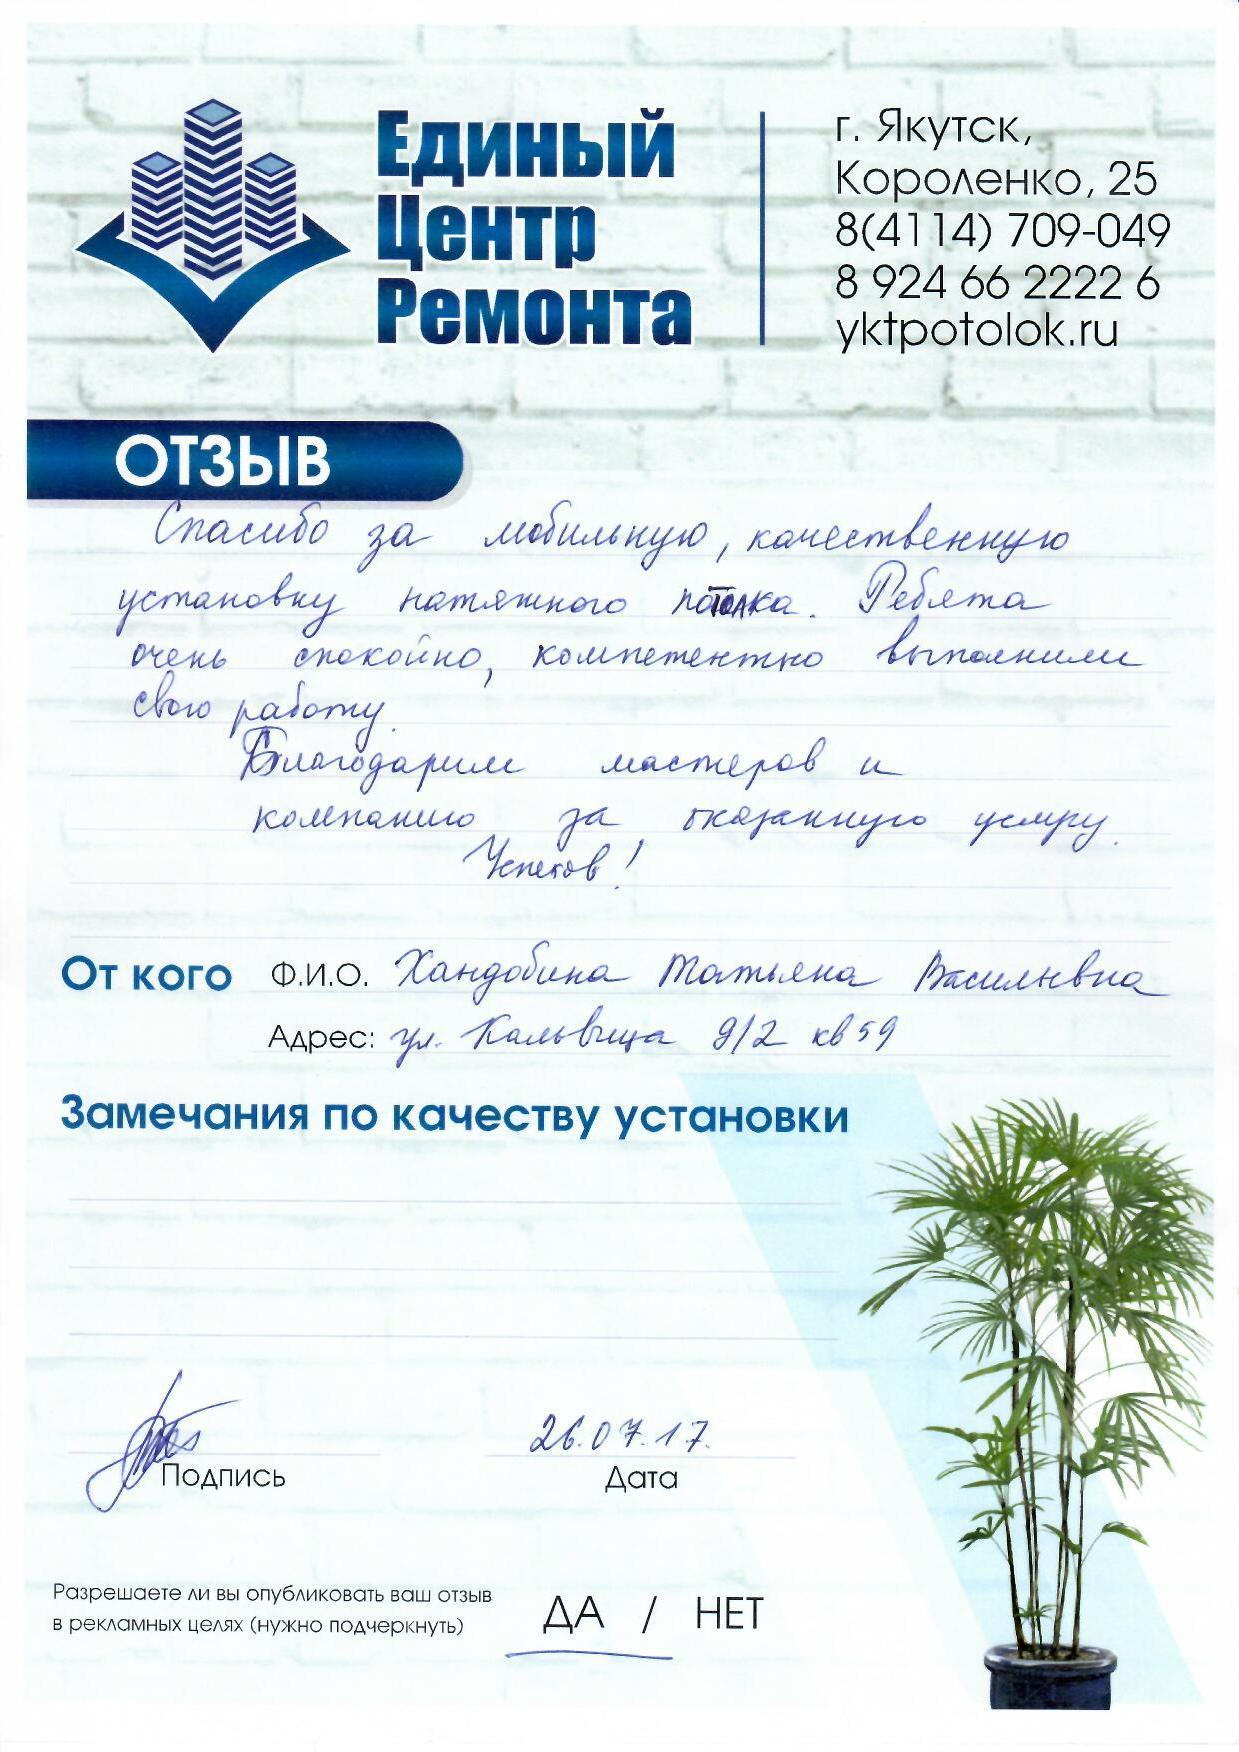 Единый
Центр
Ремонта
г. Якутск,
Короленко, 25
8(4114) 709-049
8 924 66 2222 6
yktpotolok.ru
ОТЗЫВ
Спасибо за мобильную, качественную
установку натяжного потолка. Ребята
очень спокойно, компетентно выполнили
свою работу.
Благодарим мастеров и
компанию за оказанную услугу.
Успехов!
От кого Ф.И.О. Хандобина Татьяна Васильевна
Адрес: ул. Кальвица 9/2 кв 59
Замечания по качеству установки
26.07.17.
Подпись Дата
Разрешаете ли вы опубликовать ваш отзыв
в рекламных целях (нужно подчеркнуть) ДА / НЕТ